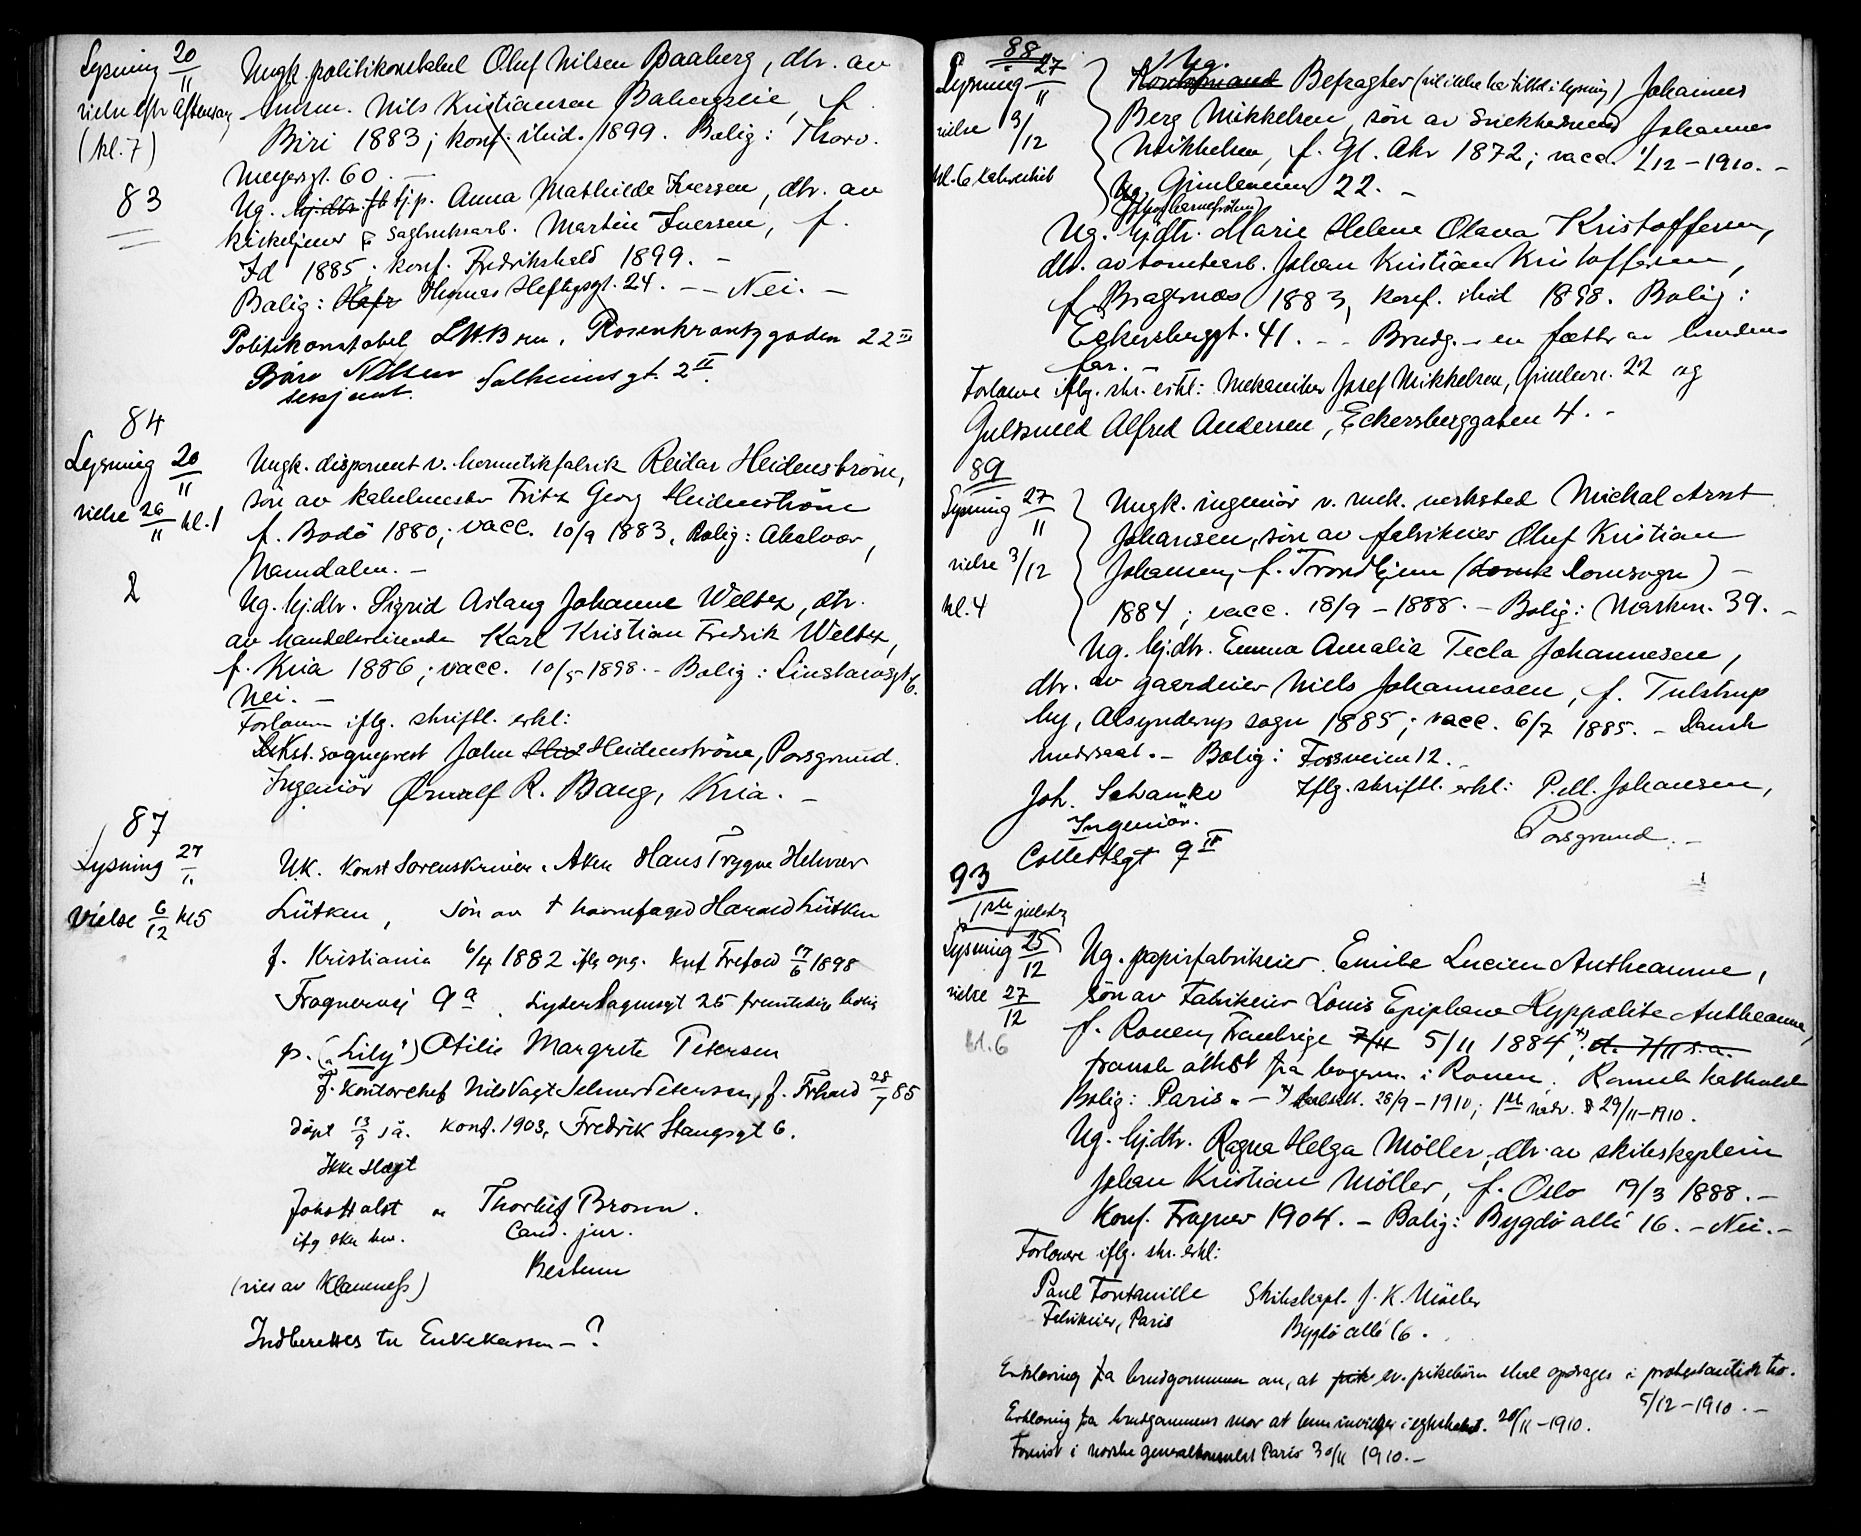 Lysning 20/11
vielse eftr Aftensang
(kl. 7)
83
Ungk. politikonstabel Oluf Nilsen Baaberg, dtr. av
Nils Kristiansen
Biri 1883; konf. ibid. 1899. Bolig: Thorv.
Meyersgt. 60 -
Ug. tj.p. Anna Mathilde Iversen, dtr. av
kirketjener sagbruksarb. Martin Iversen, f.
Id 1885; konf. Fredrikshald 1899. -
Bolig: Thomas Heftyesgt. 24. - - Nei. -
Politikonstabel Rosenkrantzgaden 22 III
Nilsen Solheimsgt. 2 II
sersjant.
84
Lysning 20/11
vielse 26/11 kl. 1
2
Ungk. disponent v. hermetikfabrik Reidar Heidenstrøm,
søn av Fritz Georg Heidenstrøm
f. Bodö 1880; vacc. 10/9 1883, Bolig: Abelvær,
Namdalen. -
Ug. hj.dtr. Sigrid Aslaug Johanne Weltz, dtr.
av handelsreisende Karl Kristian Fredrik Weltz,
f. Kria 1886; vacc. 10/5-1898. - Bolig: Linstowsgt 6.
Nei. -
Forlovere iflg. skriftl. erkl:
sogneprest John Heidenstrøm, Porsgrund.
Ingeniör Ørnulf R. Bang, Kria. -
87
Lysning 27/11
Vielse 6/12 kl 5
U.K. Konst Sorenskriver Hans Trygve Helmer
Lütken, Sön av † havnefoged Harald Lütken
f. Kristiania 6/4 1882 iflg opg. knf Trefold 17/6 1898
Frognervej 9 a. Lyder Sagensgt 25 fremtidig bolig
p. ("Lily") Otilie Margrete Petersen
F. Kontorchef Nils Vogt Selmer Petersen, f. Trefold 28/7 85
döpt 13/9 s å. Konf. 1903, Fredrik Stangsgt 6.
Ikke slægt
Thorleif Bronn.
Cand. jur.
Bestum
(vies av Klaveness)
Indberettes til Enkekassen - ?
88
Lysning 27/11
vielse 3/12
kl. 6
Ug.
Befragter (vil ikke ha titel i lysning) Johannes
Berg Mikkelsen, sön av Snekkersvend Johannes
Mikkelsen, f. Gl. Aker 1872; vacc. 1/12-1910. -
Gimleveien 22. -
Ug. hj.dtr. Marie Helene Olava Kristoffersen,
dtr. av tomtearb. Johan Kristian Kristoffersen,
f. Bragernæs 1883, konf. ibid 1898. Bolig:
Eckersberggt. 41. - - Brudg. - en fætter av brudens
far. -
Forlovere iflg. skr. erkl: Mekaniker Josef Mikkelsen, Gimlevn. 22 og
Guldsmed Alfred Andersen, Eckersberggaten 4. -
89
Lysning 27/11
vielse 3/12
kl. 4
Ungk. ingeniör v. mek. verksted Mickal Arnt
Johansen, sön av fabrikeier Oluf Kristian
Johansen, f. Trondhjem (Domsogn) -
1884; vacc. 18/9 - 1888. - Bolig: Markvn. 39. -
Ug. hj.dtr. Emma Amalia Tecla Johannesen,
dtr. av gaardeier Niels Johannesen, f. Tulstrup
by, Alsynderup sogn 1885; vacc. 6/7 1885. - Dansk
undersaat. - Bolig: Fossveien 12. -
Joh. Schanke Iflg. skriftl. erkl: P. M. Johansen,
Ingeniör. Porsgrund. -
Collettsgt 9 II
93
1ste juledag
Lysning 25/12
vielse 27/12
kl. 6
Ug. papirfabrikeier Emile Lucien Antheaume,
sön av Fabrikeier Louis Epiphane Hyppolite Antheaume,
f. Rouen, Frankrige 7/11 5/11 1884 x); d. 7/11 s.a.
fransk attest fra borgerm. i Rouen. Romersk katholsk
Bolig: Paris. - 28/9 - 1910; 29/11-1910.
Ug. hj.dtr. Ragna Helga Möller, dtr. av skibskaptein
Johan Kristian Möller, f. Oslo 19/3 1888. -
Konf. Frogner 1904. - Bolig: Bygdö allé 16. - Nei. -
Forlovere iflg. skr. erkl:
Paul Fontanille Skibskapt. J. K. Möller
Fabrikeier, Paris Bygdö allé 16.
Erklæring fra brudgommen om, at ev. pikebörn skal opdrages i protestantisk tro.
5/12-1910. -
Erklæring fra brudgommens mor at hun i egteskabet. 28/11-1910.
i norske generalkonsulat Paris 30/11 1910. -